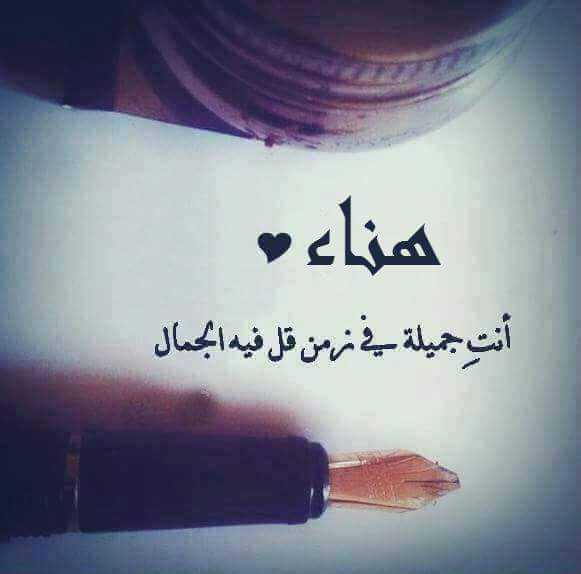 هناء ♥
أنتِ جميلة في زمن قل فيه الجمال